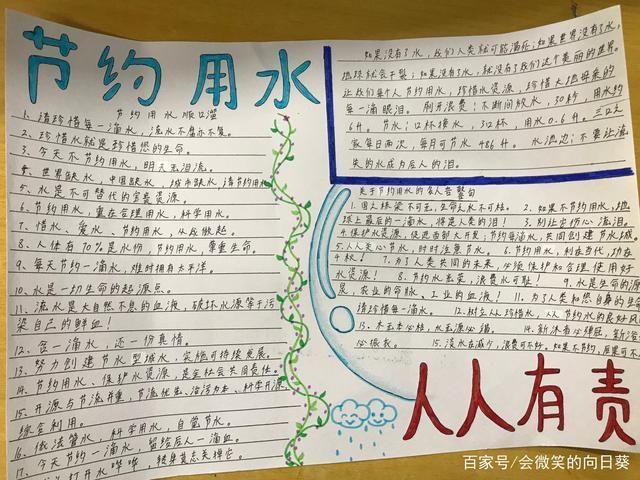 节约用水
节约用水顺口溜
1、请珍惜每一滴水，流水不腐永不复。
2、珍惜水就是珍惜您的生命。
3、今天不节约用水，明天无泪流。
4、世界缺水，中国缺水，城市缺水，请节约用水
5、水是不可替代的宝贵资源。
6、节约用水，重在合理用水，科学用水。
7、惜水、爱水、节约用水，从我做起。
8、人体有70%是水份，节约用水，尊重生命。
9、每天节约一滴水，难时拥有太平洋。
10、水是一切生命的起源点。
11、流水是大自然不息的血液，破坏水源等于污
染自己的鲜血！
12、含一滴水，还一份真情。
13、努力创建节水型城市，实施可持续发展。
14、节约用水、保护水资源，是全社会共同责任。
15、开源与节流并重，节流优先、治污为本、科学开源、
综合利用。
16、依法管水，科学用水，自觉节水。
17、今天节约一滴水，留给后人一滴血。
打开水哗哗，转身莫忘关掉它。
如果没有了水，我们人类就可能灭亡；如果世界没有了水，
地球就会干裂；如果没有了水，就没有了我们这个美丽的世界。
让我们每个人节约用水，珍惜水资源，珍惜大地母亲的
每一滴眼泪。刷牙浪费！不断间放水，30秒，用水约
6升。节水：口杯接水，3口杯，用水0.6升。三口之
家每日两次，每月可节水486升。水流边：不要让流
失的水成为后人的泪。
关于节约用水的名人名警句
1、国无栋梁不可无，生命无水不可核。 2、如果不节约用水，地
球上最后的一滴水，将是人类的泪！ 3、别让它伤心流泪。
4、保护水资源，促进西部大开发；节约每滴水，共同创建节水城
5、人人关心节水，时时注意节水。 6、节约用水，利在当代，功在
千秋！ 7、为了人类共同的未来，必须维护和合理使用好
水资源！ 8、节约水光荣，浪费水可耻！ 9、水是生命的源
泉，农业的命脉、工业的血液！ 11、为了人类和您自身的生命
请珍惜每一滴水。 12、树立人人珍惜水、人人节约水的良好风
13、木无本必枯，水无源必竭。 14、新沐者必弹冠，新浴
必振衣。 15、淡水在减少，浪费可不好。如果不节约，后果可不
人人有责
百家号/会微笑的向日葵